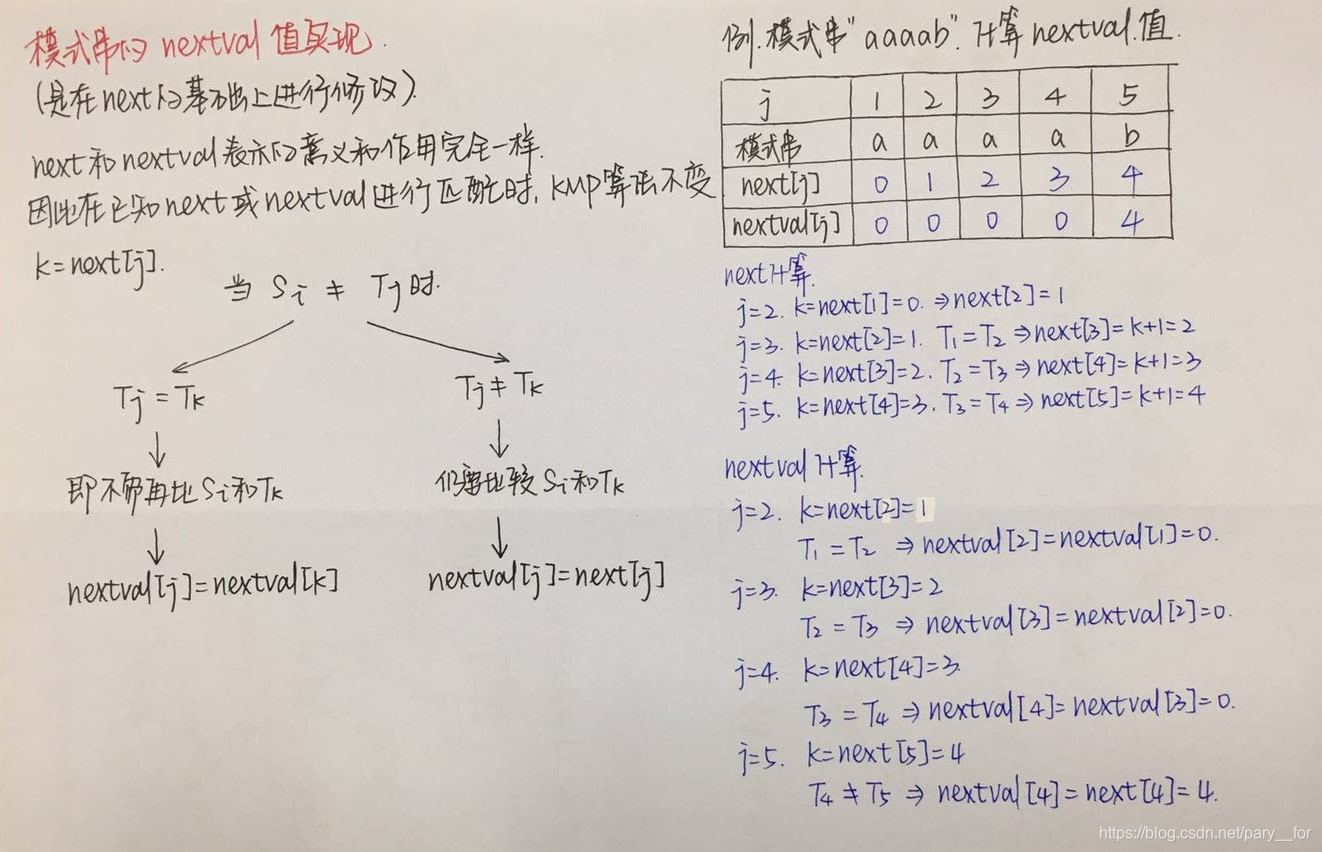 模式串的 nextval 值实现.
(是在next的基础上进行修改).
next和nextval表示的意义和作用完全一样.
因此在已知next或nextval进行匹配时, KMP算法不变
k=next[j].
当 Si ≠ Tj时.
Tj = Tk
Tj ≠ Tk
即不需再比Si和Tk
仍要比较Si和Tk
nextval[j]=nextval[k]
nextval[j]=next[j]
例.模式串"aaaab".计算nextval.值.
j 1 2 3 4 5
模式串 a a a a b
next[j] 0 1 2 3 4
nextval[j] 0 0 0 0 4
next计算.
j=2. k=next[1]=0. ⇒next[2]=1
j=3. k=next[2]=1. T1=T2 ⇒next[3]=k+1=2
j=4. k=next[3]=2. T2=T3 ⇒next[4]=k+1=3
j=5. k=next[4]=3. T3=T4 ⇒next[5]=k+1=4
nextval计算.
j=2. k=next[2]=1
T1=T2 ⇒nextval[2]=nextval[1]=0.
j=3. k=next[3]=2
T2=T3 ⇒nextval[3]=nextval[2]=0.
j=4. k=next[4]=3
T3=T4 ⇒nextval[4]=nextval[3]=0.
j=5. k=next[5]=4
T4≠T5 ⇒nextval[4]=next[4]=4.
https://blog.csdn.net/pary__for